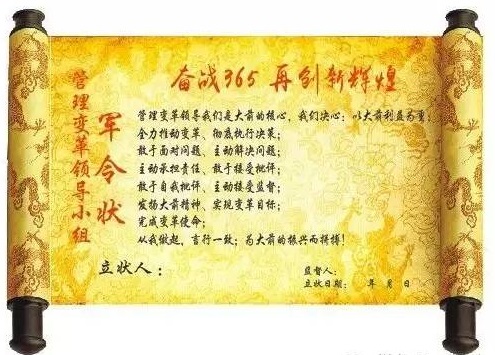 奋战365 再创新辉煌
管理变革领导小组
军令状
管理变革领导我们是大前的核心，我们决心：以大前利益为重；
全力推动变革、彻底执行决策；
敢于面对问题、主动解决问题；
主动承担责任、敢于接受批评；
敢于自我批评、主动接受监督；
发扬大前精神、实现变革目标；
完成变革使命；
从我做起，言行一致；为大前的振兴而拼搏！
立状人：
监督人：
立状日期： 年 月 日